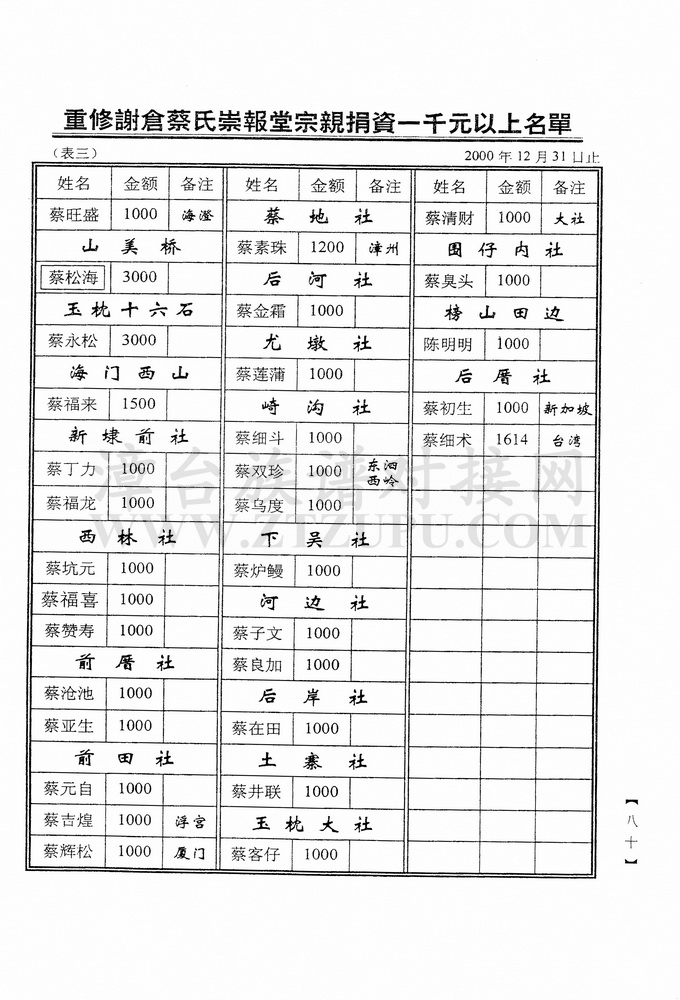 重修謝倉蔡氏崇報堂宗親捐資一千元以上名單
（表三）
2000 年 12 月 31 日止
姓名 金额 备注
蔡旺盛 1000 海澄
山美桥
蔡松海 3000
玉枕十六石
蔡永松 3000
海门西山
蔡福来 1500
新埭前社
蔡丁力 1000
蔡福龙 1000
西林社
蔡坑元 1000
蔡福喜 1000
蔡赞寿 1000
前厝社
蔡沧池 1000
蔡亚生 1000
前田社
蔡元自 1000
蔡吉煌 1000 浮宫
蔡辉松 1000 厦门
姓名 金额 备注
蔡地社
蔡素珠 1200 漳州
后河社
蔡金霜 1000
尤墩社
蔡莲蒲 1000
崎沟社
蔡细斗 1000
蔡双珍 1000 东泗
西岭
蔡乌度 1000
下吴社
蔡炉鳗 1000
河边社
蔡子文 1000
蔡良加 1000
后岸社
蔡在田 1000
土寨社
蔡井联 1000
玉枕大社
蔡客仔 1000
姓名 金额 备注
蔡清财 1000 大社
围仔内社
蔡臭头 1000
榜山田边
陈明明 1000
后厝社
蔡初生 1000 新加坡
蔡细术 1614 台湾
【八十】
漳台族谱对接网
WWW.ZTZUPU.COM